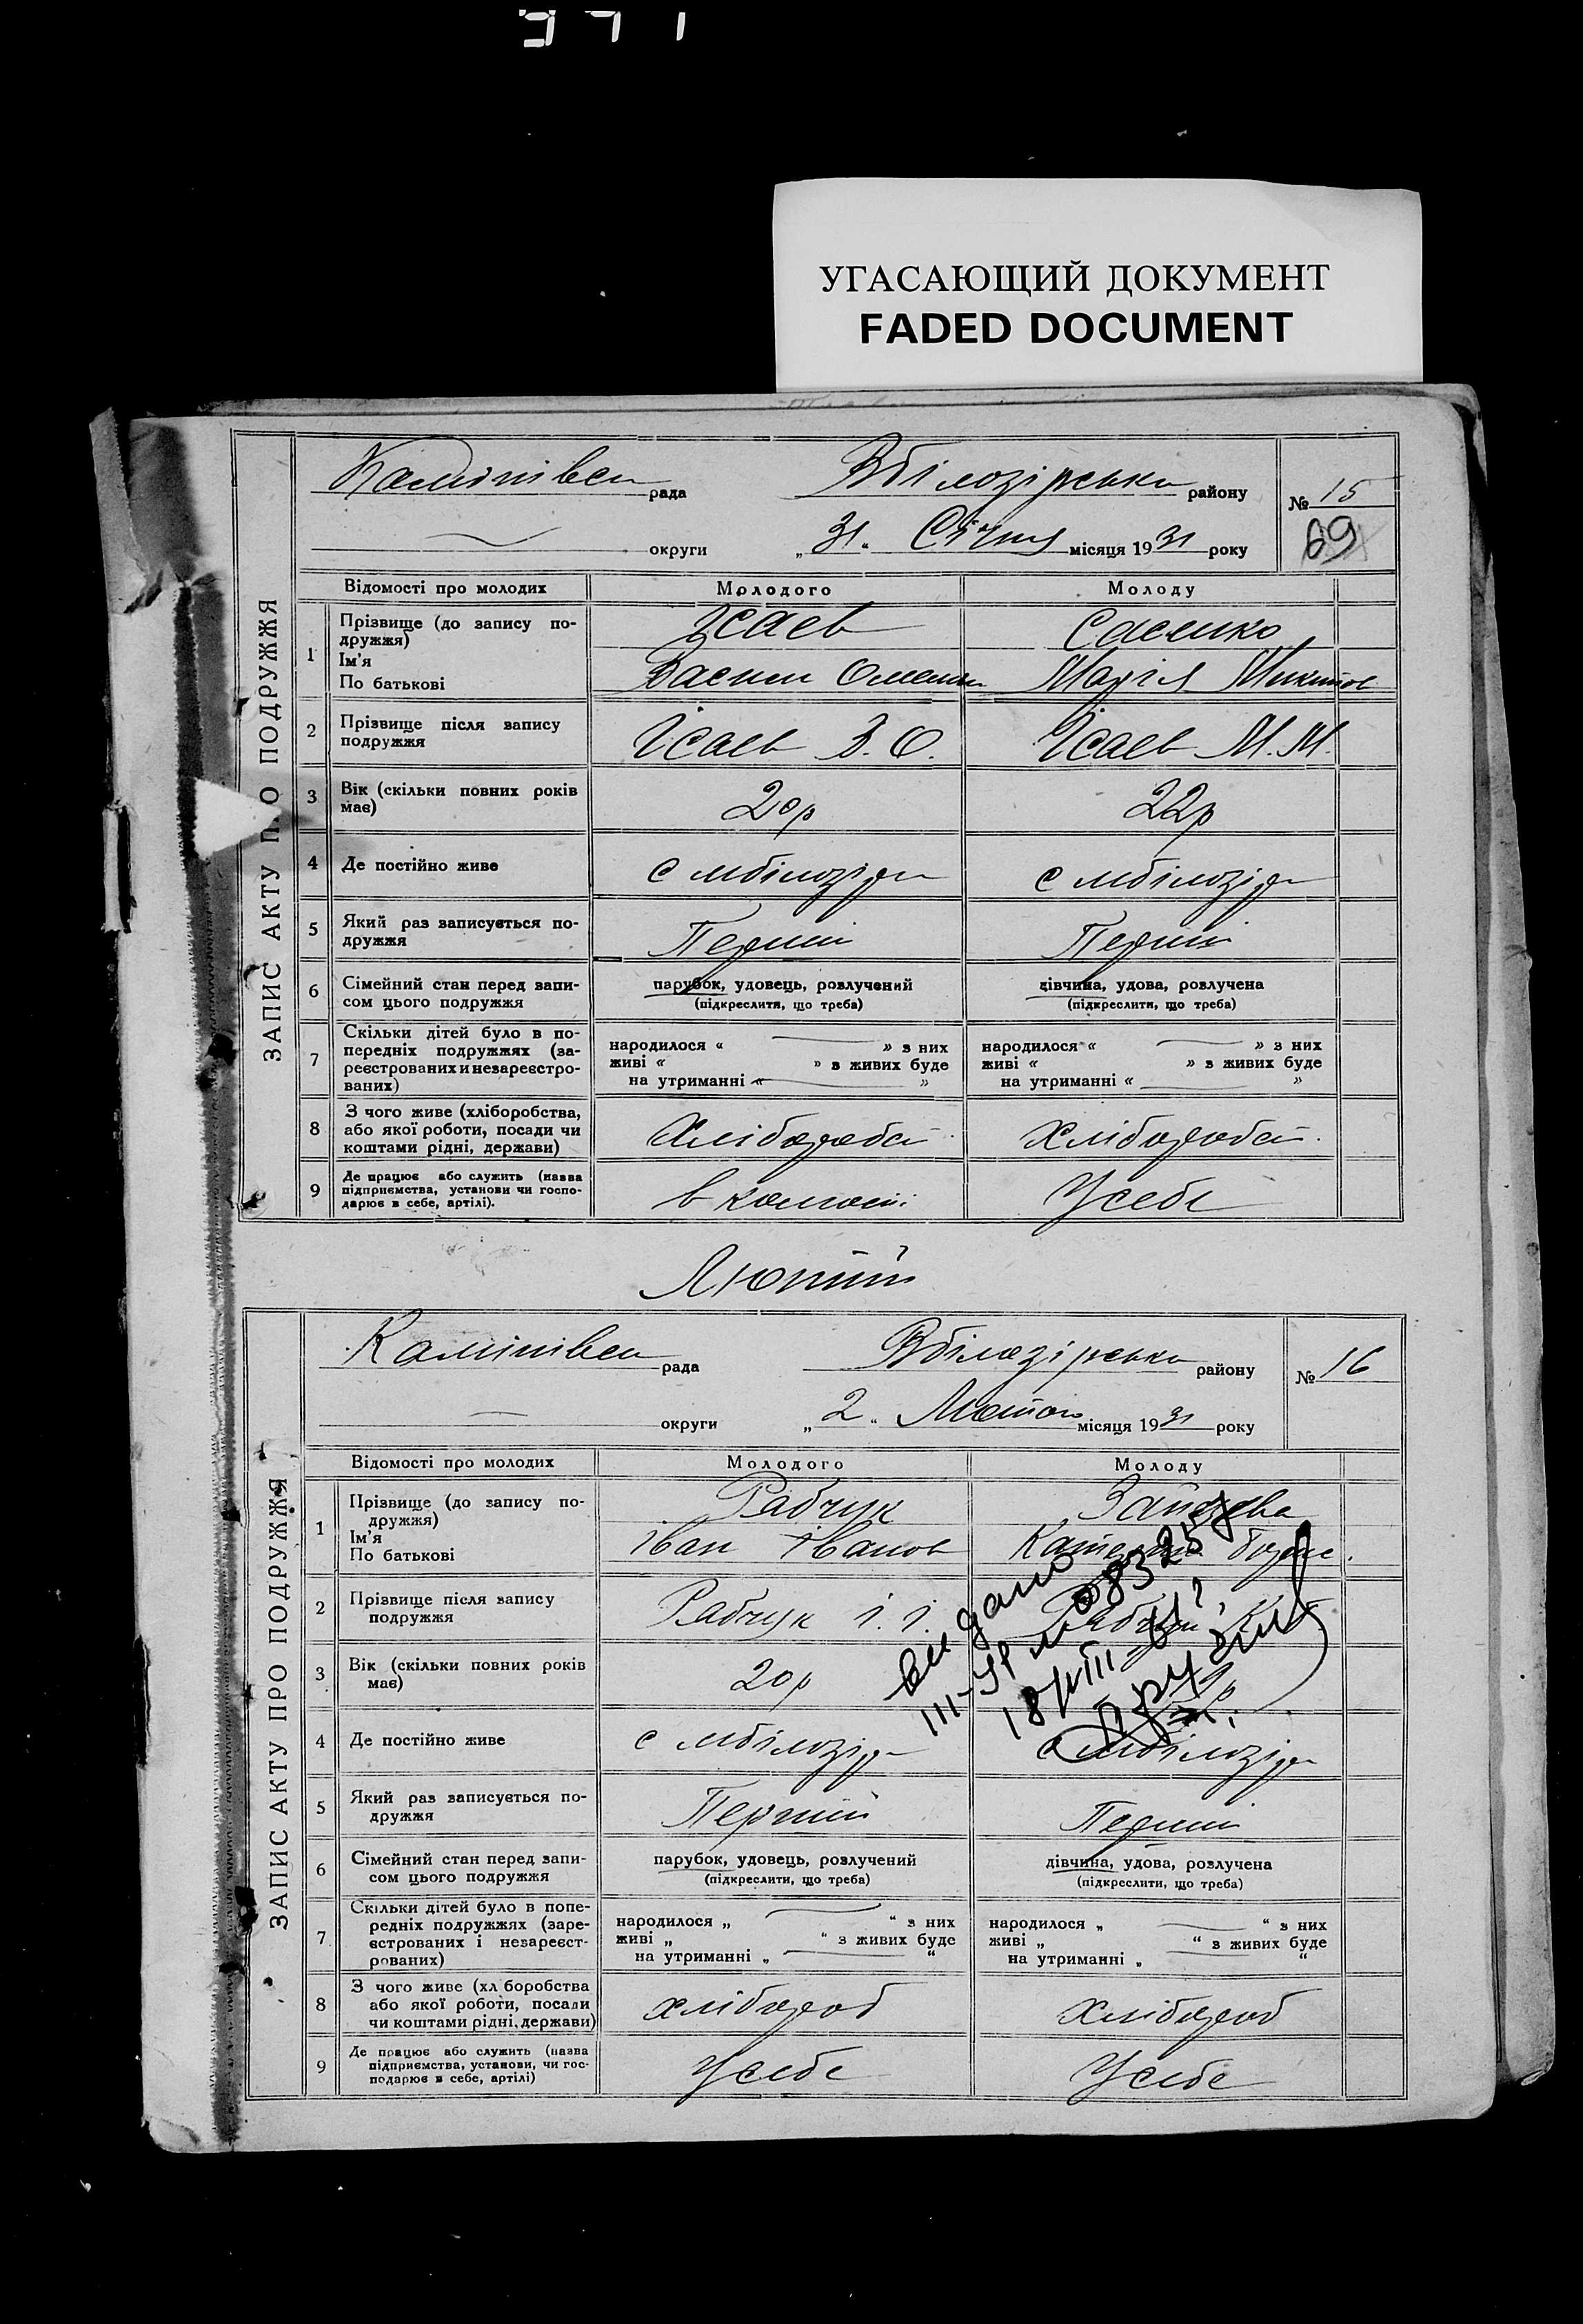 УГАСАЮЩИЙ ДОКУМЕНТ
FADED DOCUMENT
ЗАПИС АКТУ ПРО ПОДРУЖЖЯ
рада Вбілозірська району № 15
округи „31“ Січня місяця 1931 року 69
Відомості про молодих Молодого Молоду
1 Прізвище (до запису по-
дружжя)
Ім'я
По батькові
Ісаєв Саєнко
Васил Марія Микитов
2 Прізвище після запису
подружжя
Ісаєв В. О. Ісаєв М. М.
3 Вік (скільки повних років
має)
20р 22р
4 Де постійно живе с мбілозірка с мбілозірка
5 Який раз записується по-
дружжя
Перший Перший
6 Сімейний стан перед запи-
сом цього подружжя
парубок, удовець, розлучений дівчина, удова, розлучена
(підкреслити, що треба) (підкреслити, що треба)
7 Скільки дітей було в по-
передніх подружжях (за-
реєстрованих и незареєстро-
ваних)
народилося « » з них народилося « » з них
живі « » з живих буде живі « » з живих буде
на утриманні « » на утриманні « »
8 З чого живе (хліборобства,
або якої роботи, посади чи
коштами рідні, держави)
9 Де працює або служить (назва
підприємства, установи чи госпо-
дарює в себе, артілі).
Усебе
Лютий
ЗАПИС АКТУ ПРО ПОДРУЖЖЯ
рада Вбілозірська району № 16
округи „2“ Лютого місяця 1931 року
Відомості про молодих Молодого Молоду
1 Прізвище (до запису по-
дружжя)
Ім'я
По батькові
Рабчук
Іван Іванов
2 Прізвище після запису
подружжя
Рабчук І. І.
видано
3 Вік (скільки повних років
має)
20р
4 Де постійно живе с мбілозірка с мбілозірка
5 Який раз записується по-
дружжя
Перший Перший
6 Сімейний стан перед запи-
сом цього подружжя
парубок, удовець, розлучений дівчина, удова, розлучена
(підкреслити, що треба) (підкреслити, що треба)
7 Скільки дітей було в попе-
редніх подружжях (заре-
єстрованих і незареєст-
рованих)
народилося „ “ з них народилося „ “ з них
живі „ “ з живих буде живі „ “ з живих буде
на утриманні „ “ на утриманні „ “
8 З чого живе (хл боробства
або якої роботи, посади
чи коштами рідні, держави)
хлібороб хлібороб
9 Де працює або служить (назва
підприємства, установи, чи гос-
подарює в себе, артілі)
Усебе Усебе